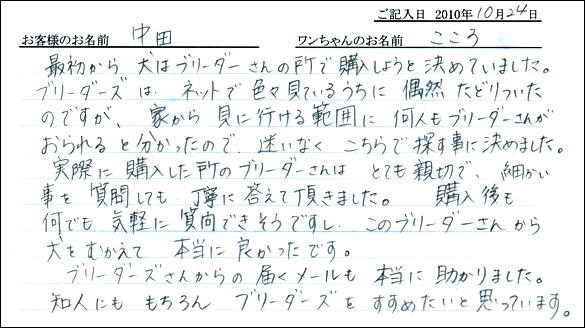 ご記入日 2010年10月24日
お客様のお名前 中田 ワンちゃんのお名前 こころ
最初から 犬はブリーダーさんの所で購入しようと決めていました。
ブリーダーズは、ネットで色々見ているうちに 偶然 たどりついた
のですが、 家から 見に行ける範囲に 何人もブリーダーさんが
おられると分かったので、迷いなく こちらで探す事に決めました。
実際に購入した所のブリーダーさんは とても親切で、細かい
事を 質問しても 丁寧に答えて頂きました。 購入後も
何でも 気軽に質問できそうですし、このブリーダーさんから
犬をむかえて 本当に良かったです。
ブリーダーズさんからの 届くメールも 本当に助かりました。
知人にも もちろん ブリーダーズを すすめたいと思っています。